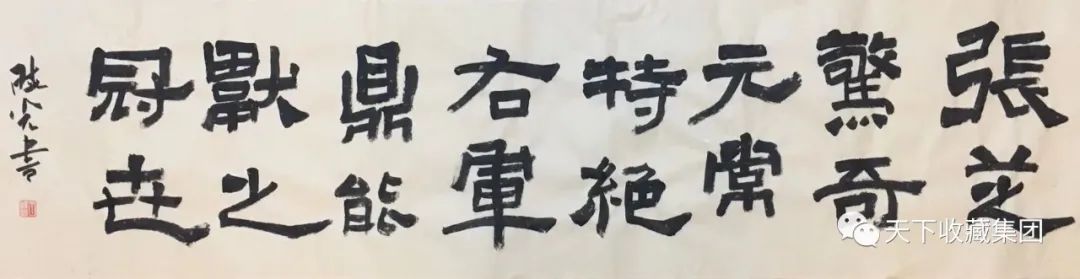 張芝
驚奇
元常
特絕
右軍
鼎能
獻之
冠世
書
天下收藏集团